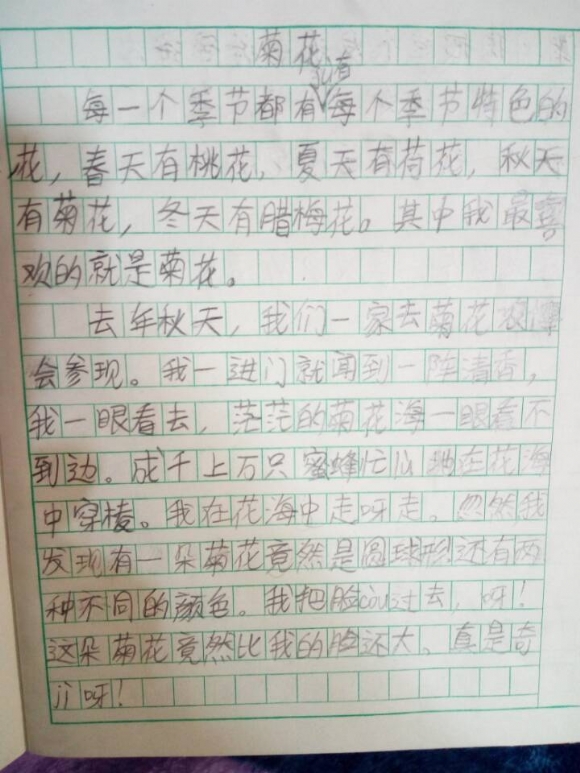 菊花
以有
每一个季节都有每个季节特色的
花，春天有桃花、夏天有荷花，秋天
有菊花，冬天有腊梅花。其中我最喜
欢的就是菊花。
去年秋天，我们一家去菊花
会参现。我一进门就闻到一阵清香，
我一眼看去，茫茫的菊花海一眼看不
到边。成千上万只蜜蜂忙
在花海
中穿棱。我在花海中走呀走。忽然我
发现有一朵菊花竟然是圆球形还有两
种不同的颜色。我把脸còu过去，呀！
这朵菊花竟然比我的脸还大、真是奇
jì呀！